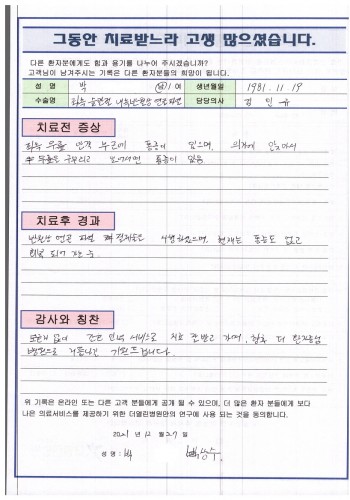 그동안 치료받느라 고생 많으셨습니다.
다른 환자분에게도 힘과 용기를 나누어 주시겠습니까?
고객님이 남겨주시는 기록은 다른 환자분들의 희망이 됩니다.
성 명 박 남 / 여 생년월일 1981. 11. 19
수술명 좌측 슬관절 내측 반월상 연골 파열 담당의사 김 민 규
치료전 증상
좌측 무릎 안쪽 부근에 통증이 있으며,
무릎을 구부리고 통증이 있음
치료후 경과
반월상 연골 파열 시행하였으며, 현재는 통증도 없고
회복 되어 가는 중.
감사와 칭찬
서비스로 치료 잘 받고 가며, 더
병원으로 기원드립니다.
위 기록은 온라인 또는 다른 고객 분들에게 공개 될 수 있으며, 더 많은 환자 분들에게 보다
나은 의료서비스를 제공하기 위한 더열린병원만의 연구에 사용 되는 것을 동의합니다.
2021 년 12 월 27 일
성 명 : 박